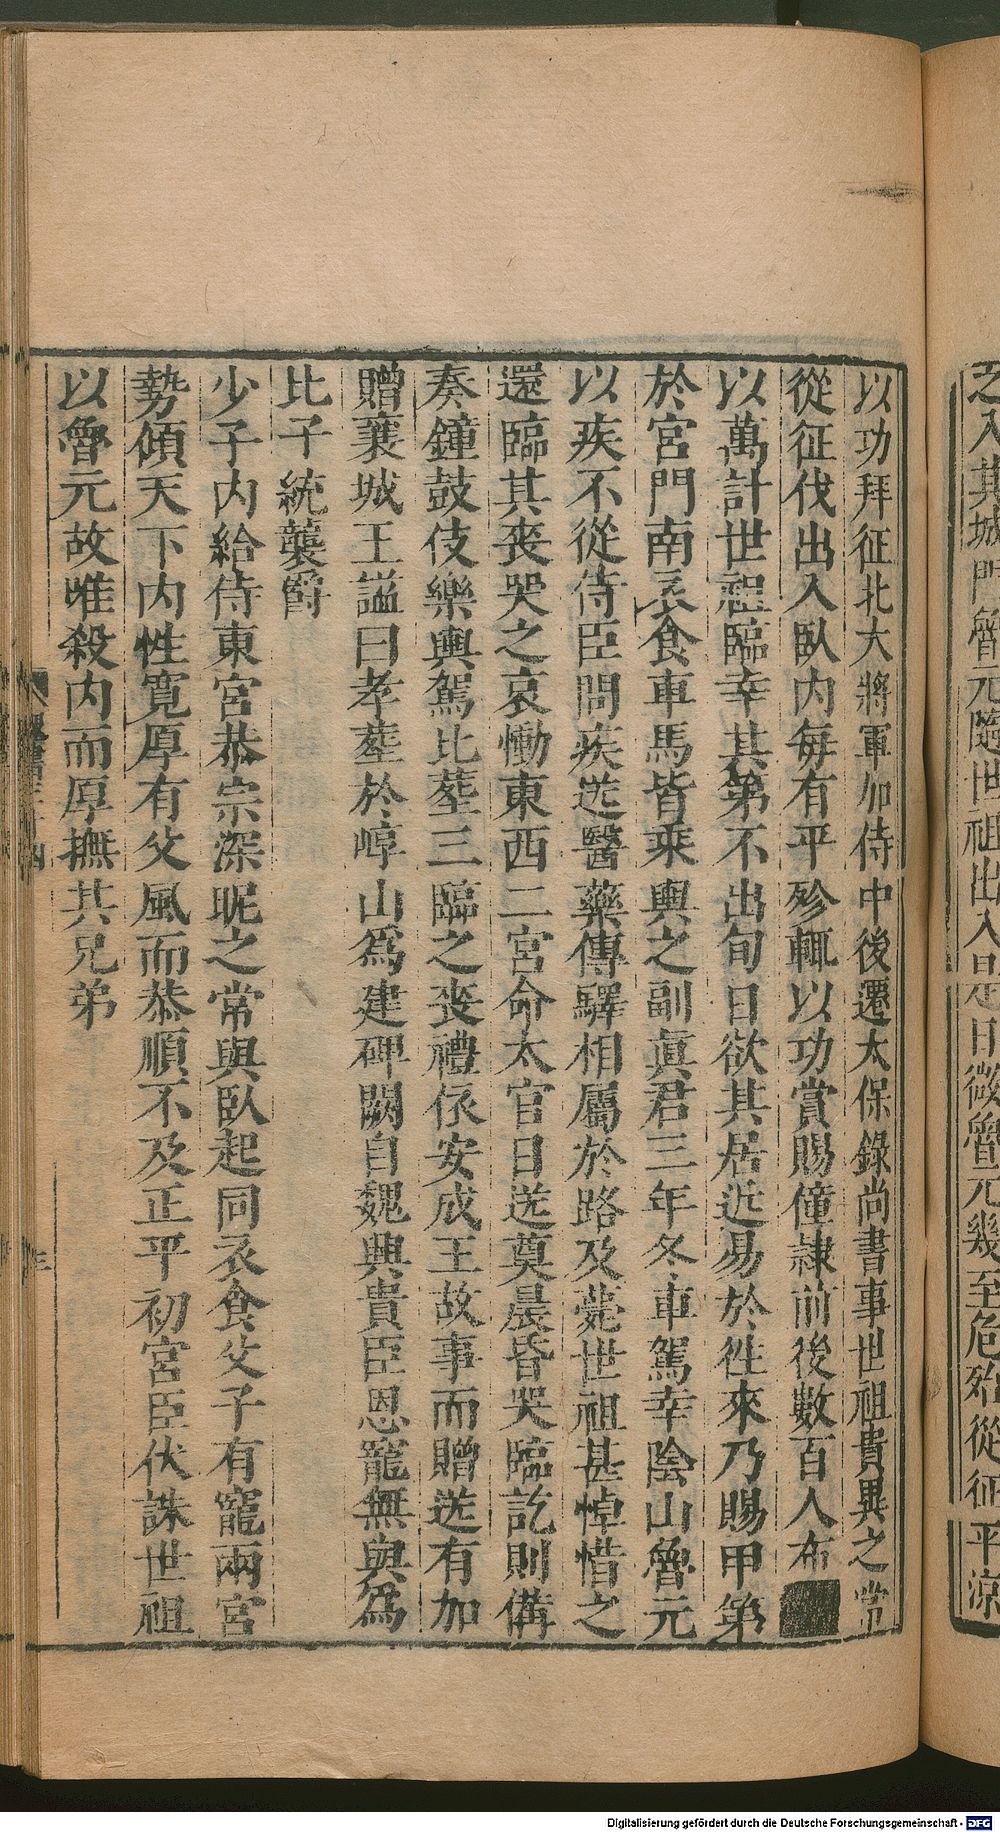 之入其城門魯元隨世祖出入是日微魯元幾至危殆從征平涼
以功拜征北大將軍加侍中後遷太保錄尚書事世祖貴異之常
從征伐出入臥內每有平殄輒以功賞賜僮隸前後數百人布
以萬計世祖臨幸其第不出旬日欲其居近易於徃來乃賜甲第
於宮門南衣食車馬皆乘輿之副眞君三年冬車駕幸陰山魯元
以疾不從侍臣問疾送醫藥傳驛相屬於路及薨世祖甚悼惜之
還臨其喪哭之哀慟東西二宮命太官日送奠晨昏哭臨訖則備
奏鐘鼓伎樂輿駕比葬三臨之喪禮依安成王故事而贈送有加
贈襄城王諡曰孝葬於崞山爲建碑闕自魏興貴臣恩寵無與爲
比子統襲爵
少子內給侍東宮恭宗深昵之常與臥起同衣食父子有寵兩宮
勢傾天下內性寬厚有父風而恭順不及正平初宮臣伏誅世祖
以魯元故唯殺內而厚撫其兄弟
三
Digitalisierung gefördert durch die Deutsche Forschungsgemeinschaft - DFG